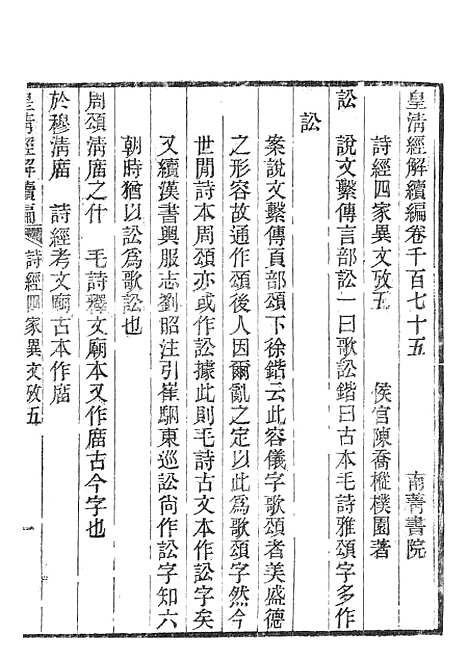 皇淸經解續編卷千百七十五 南菁書院
詩經四家異文攷五 侯官陳喬樅樸園著
訟 說文繫傳言部訟一曰歌訟鍇曰古本毛詩雅頌字多作
訟
案說文繫傳頁部頌下徐鍇云此容儀字歌頌者美盛德
之形容故通作頌後人因爾亂之定以此爲歌頌字然今
世閒詩本周頌亦或作訟據此則毛詩古文本作訟字矣
又續漢書輿服志劉昭注引崔駰東巡訟尙作訟字知六
朝時猶以訟爲歌訟也
周頌淸庿之什 毛詩釋文廟本又作庿古今字也
於穆淸庿 詩經考文廟古本作庿
皇淸經解續編 詩經四家異文攷五 一